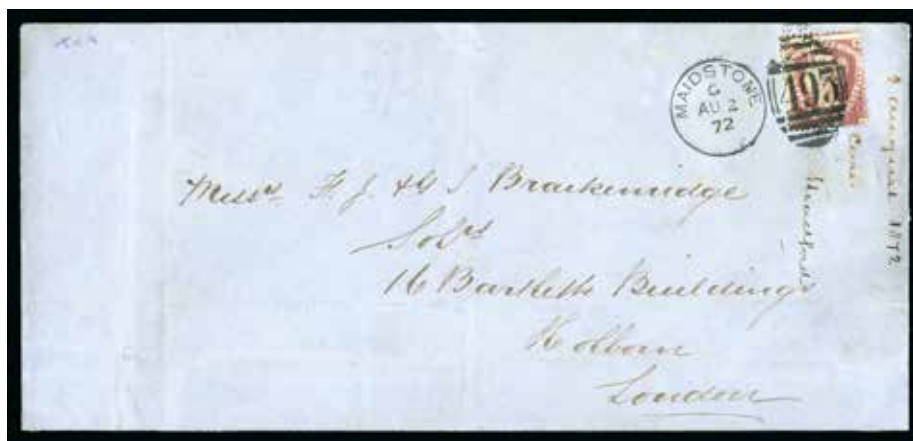 MAIDSTONE
G
AU 2
72
495
Messrs F. J. & G J Braikenridge
Solrs
16 Bartletts Buildings
Holborn
London
August 1872